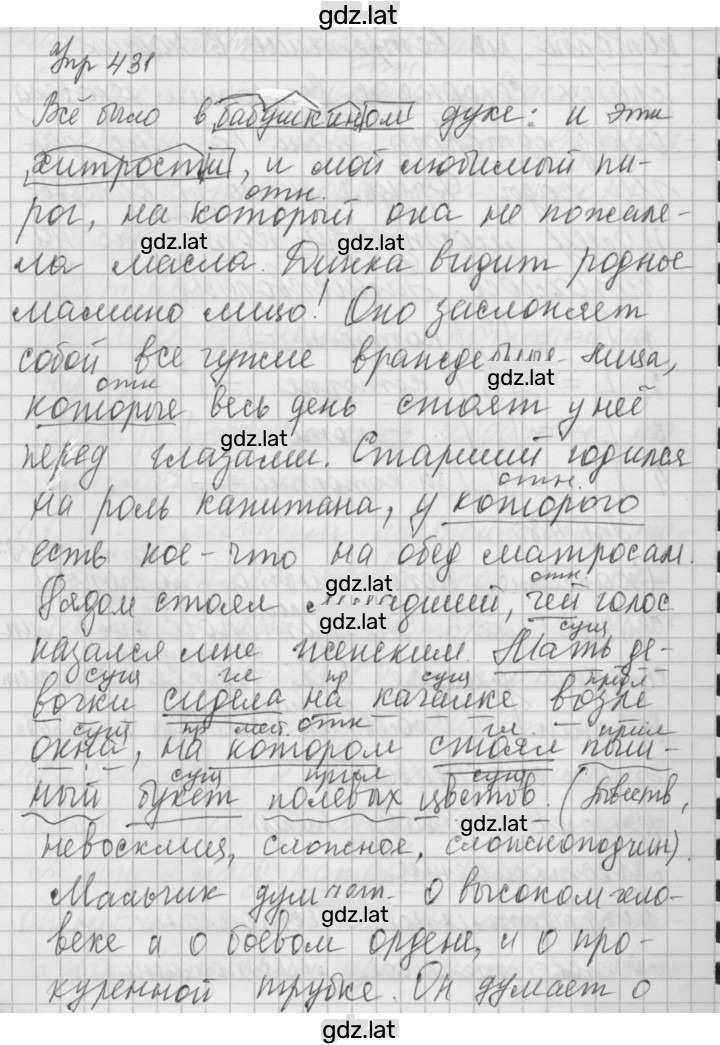 gdz.lat
Упр 431
Всё было в бабушкином духе: и эти
хитрости, и мой любимый пи-
отн.
рог, на который она не пожале-
gdz.lat gdz.lat
ла масла. Динка видит родное
мамино лицо! Оно заслоняет
собой все чужие враждебные лица,
gdz.lat
отн
которые весь день стоят у неё
gdz.lat
перед глазами. Старший годился
отн.
на роль капитана, у которого
есть кое-что на обед матросам.
gdz.lat отн.
Рядом стоял младший, чей голос
gdz.lat сущ
казался мне женским. Мать де-
сущ гл пр сущ прил
вочки сидела на качалке возле
сущ пр мест. отн гл. прил
окна, на котором стоял пыш-
сущ прил сущ
ный букет полевых цветов. (Повеств,
gdz.lat
невосклиц, сложное, сложноподчин).
Мальчик думает о высоком чело-
gdz.lat
веке и о боевом ордене, и о про-
куренной трубке. Он думает о
gdz.lat